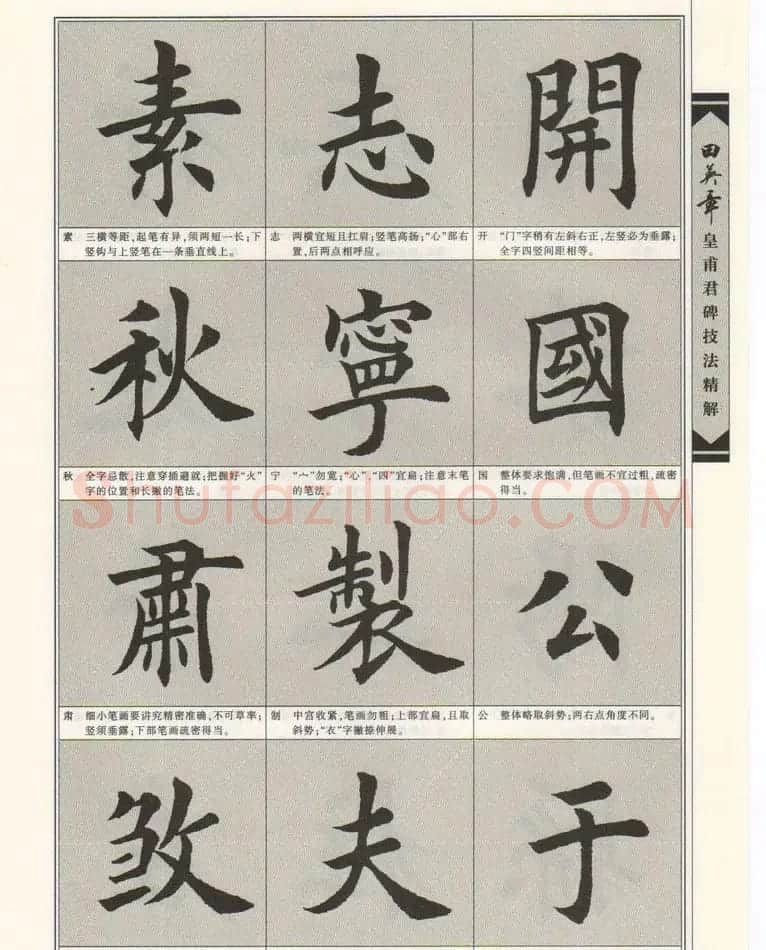 田英章
皇甫君碑技法精解
開
开 “门”字稍有左斜右正,左竖必为垂露;
全字四竖间距相等。
國
国 整体要求饱满,但笔画不宜过粗,疏密
得当。
公
公 整体略取斜势;两右点角度不同。
于
志
志 两横宜短且扛肩;竖笔高扬;“心”部右
置,后两点相呼应。
寧
宁 “宀”勿宽;“心”、“四”宜扁;注意末笔
的笔法。
製
制 中宫收紧,笔画勿粗;上部宜扁,且取
斜势;“衣”字撇捺伸展。
夫
素
素 三横等距,起笔有异,须两短一长;下
竖钩与上竖笔在一条垂直线上。
秋
秋 全字忌散,注意穿插避就;把握好“火”
字的位置和长撇的笔法。
肅
肃 细小笔画要讲究精密准确,不可草率;
竖须垂露;下部笔画疏密得当。
Shufaziliao.COM